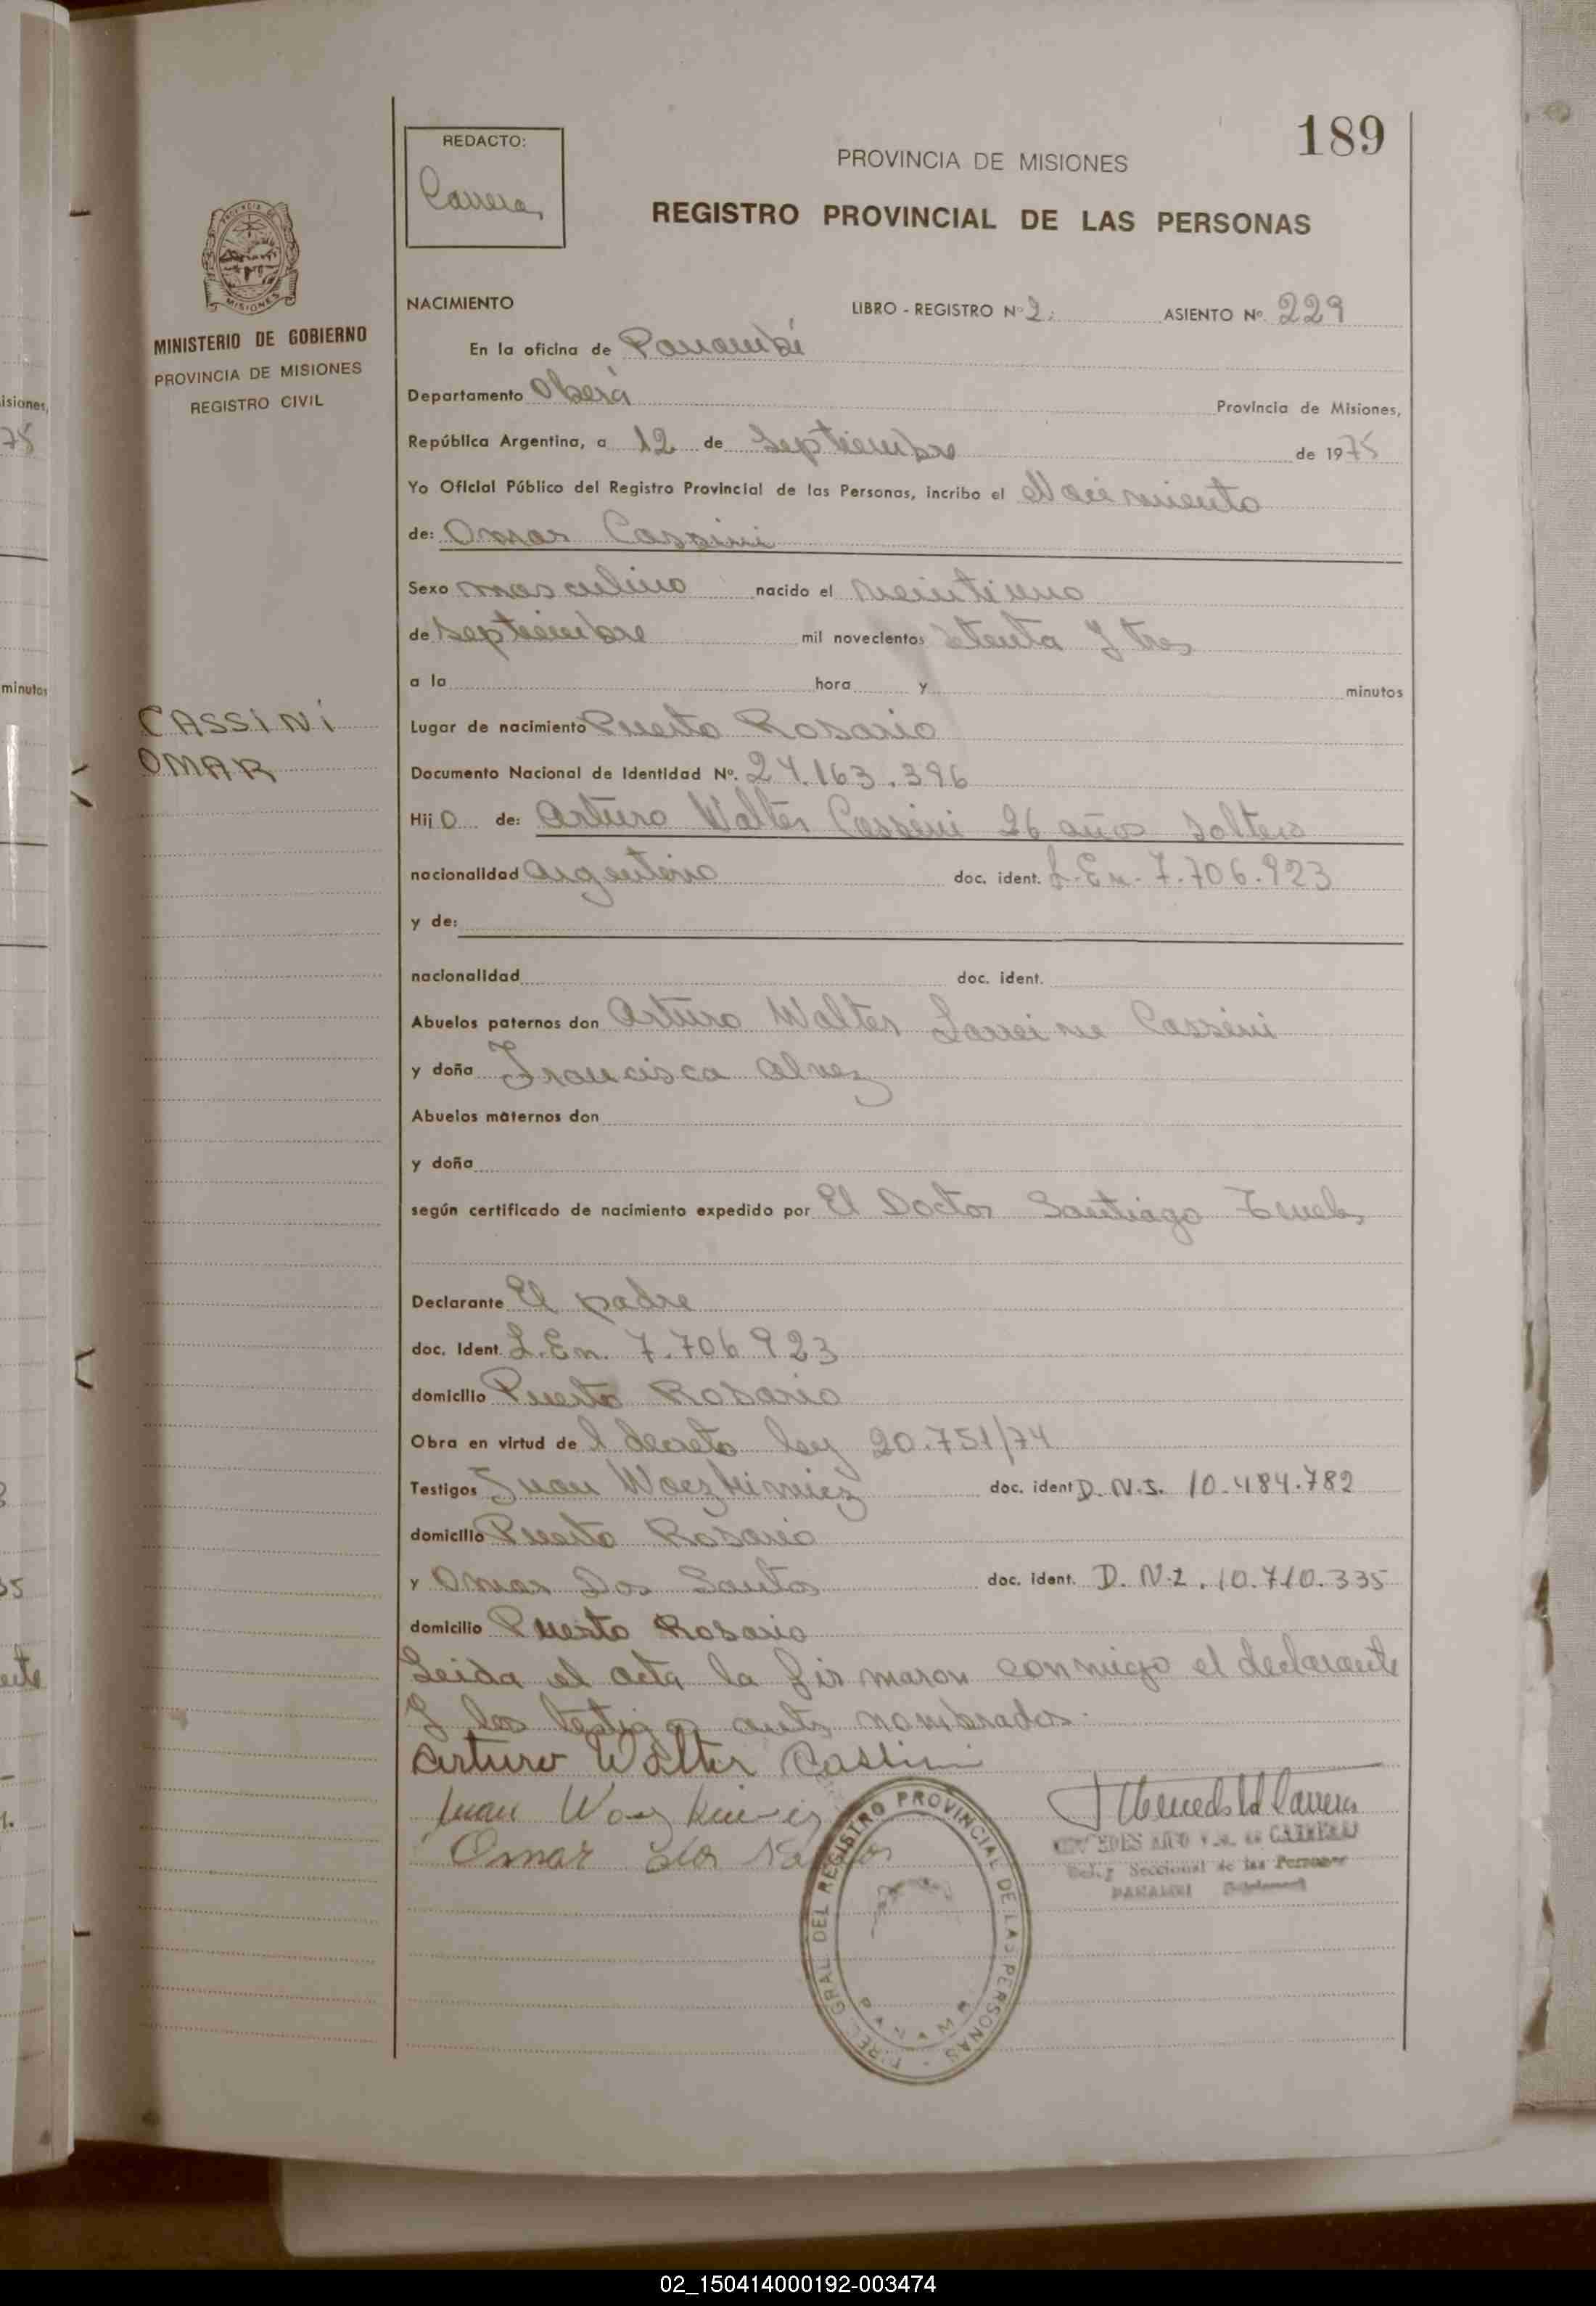 189
REDACTO:
Carrera
PROVINCIA DE MISIONES
REGISTRO PROVINCIAL DE LAS PERSONAS
MISIONES
MINISTERIO DE GOBIERNO
PROVINCIA DE MISIONES
REGISTRO CIVIL
NACIMIENTO LIBRO - REGISTRO Nº 2. ASIENTO Nº 229
En la oficina de Panambí
Departamento Oberá Provincia de Misiones,
República Argentina, a 12 de Septiembre de 1975
Yo Oficial Público del Registro Provincial de las Personas, incribo el Nacimiento
de: Omar Cassini
Sexo masculino nacido el veintiuno
de septiembre mil novecientos setenta y tres
a la hora y minutos
CASSINI
OMAR
Lugar de nacimiento Puerto Rosario
Documento Nacional de Identidad Nº. 24.163.396
Hijo de: Arturo Walter Cassini 26 años soltero
nacionalidad argentino doc. ident. L.En. 7.706.923
y de:
nacionalidad doc. ident.
Abuelos paternos don Arturo Walter Cassini
y doña Francisca Alvez
Abuelos maternos don
y doña
según certificado de nacimiento expedido por El Doctor Santiago
Declarante El padre
doc. Ident. L.En. 7.706.923
domicilio Puerto Rosario
Obra en virtud de l decreto ley 20.751/74
Testigos Juan doc. ident D.N.I. 10.484.782
domicilio Puerto Rosario
y Omar Dos Santos doc. ident. D.N.I. 10.710.335
domicilio Puerto Rosario
Leida el acta la firmaron conmigo el declarante
y los testigos antes nombrados.
Arturo Walter Cassini
Juan
Omar Dos Santos
REGISTRO PROVINCIAL DE LAS PERSONAS
Seccional de las Personas
PANAMBI
isiones,
75
minutos
35
02_150414000192-003474